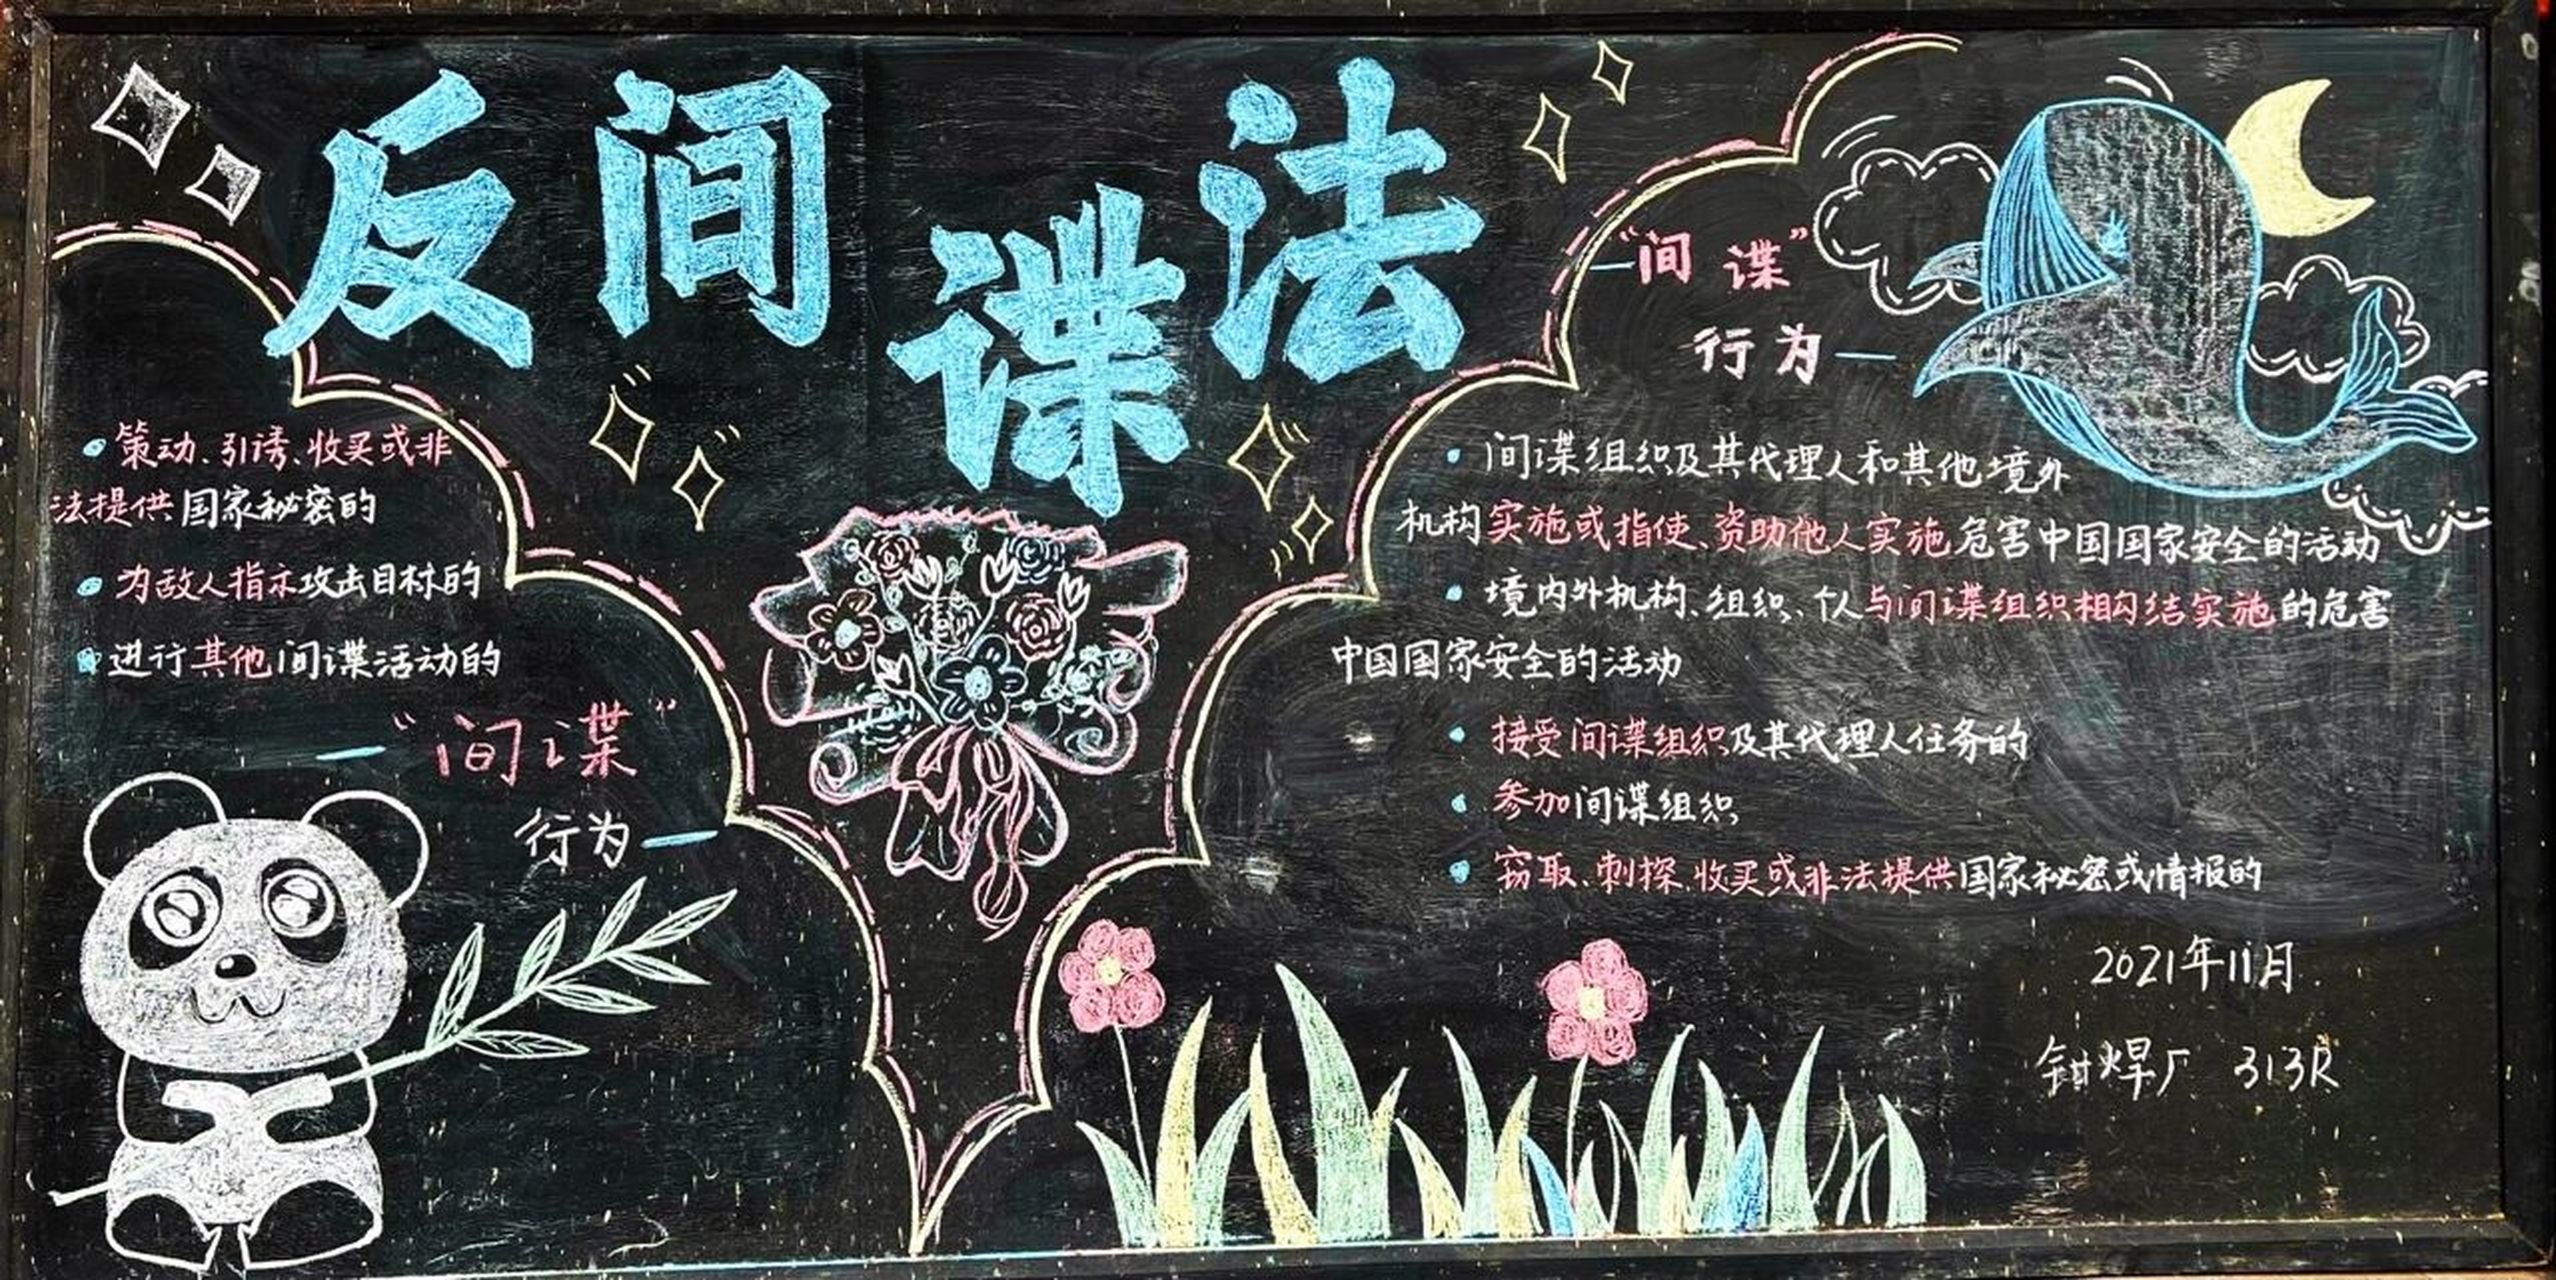 反间谍法
策动、引诱、收买或非
法提供国家秘密的
为敌人指示攻击目标的
进行其他间谍活动的
“间谍”
行为
“间谍”
行为
间谍组织及其代理人和其他境外
机构实施或指使、资助他人实施危害中国国家安全的活动
境内外机构、组织、个人与间谍组织相构结实施的危害
中国国家安全的活动
接受间谍组织及其代理人任务的
参加间谍组织
窃取、刺探、收买或非法提供国家秘密或情报的
2021年11月
钳焊厂 313R